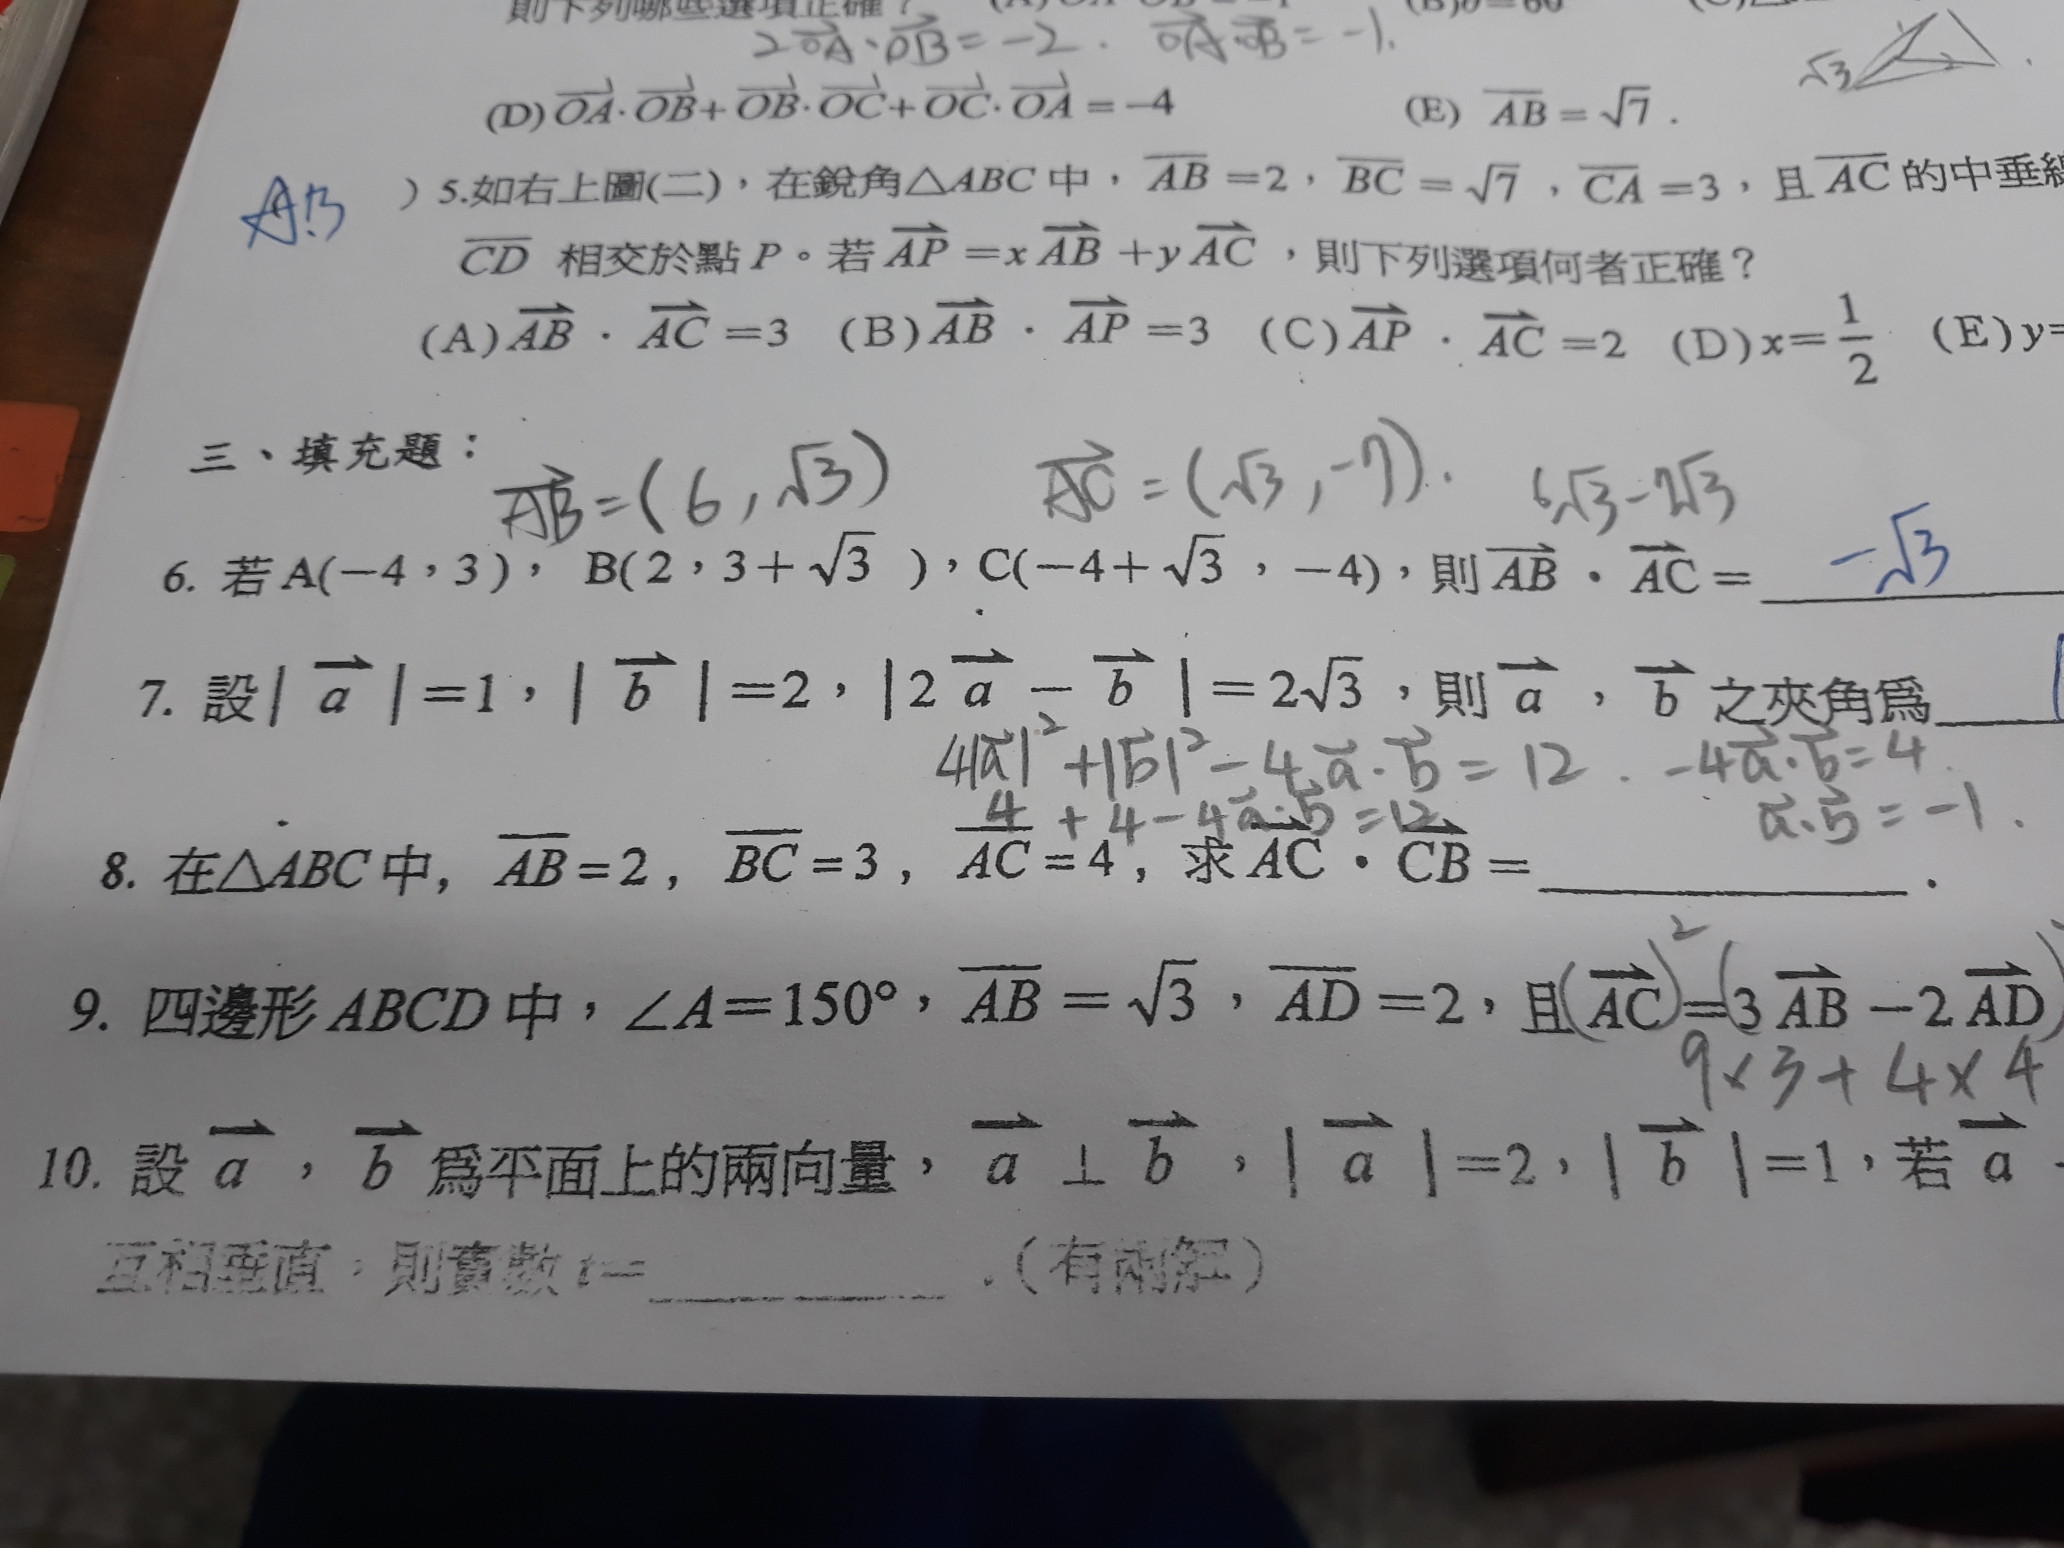 則下列哪些選項正確？
2OA·OB=-2. OA·OB=-1.
√3
(D) OA·OB+OB·OC+OC·OA=-4 (E) AB=√7.
A.B
)5.如右上圖(二)，在銳角△ABC中，AB=2，BC=√7，CA=3，且AC的中垂線
CD 相交於點P。若AP=xAB+yAC，則下列選項何者正確？
(A)AB·AC=3 (B)AB·AP=3 (C)AP·AC=2 (D)x=1/2 (E)y=
三、填充題：
AB=(6,√3) AC=(√3,-7). 6√3-7√3
6. 若A(-4，3)， B(2，3+√3 )，C(-4+√3，-4)，則AB·AC= -√3
7. 設|a|=1，|b|=2，|2a-b|=2√3，則a，b之夾角爲
4|a|²+|b|²-4a·b=12. -4a·b=4.
4+4-4a·b=12 a·b=-1.
8. 在△ABC中, AB=2, BC=3, AC=4, 求AC·CB= .
9. 四邊形ABCD中，∠A=150°，AB=√3，AD=2，且(AC)²=(3AB-2AD)
9×3+4×4
10. 設a，b爲平面上的兩向量，a⊥b，|a|=2，|b|=1，若a
互相垂直，則實數t= .(有兩解)